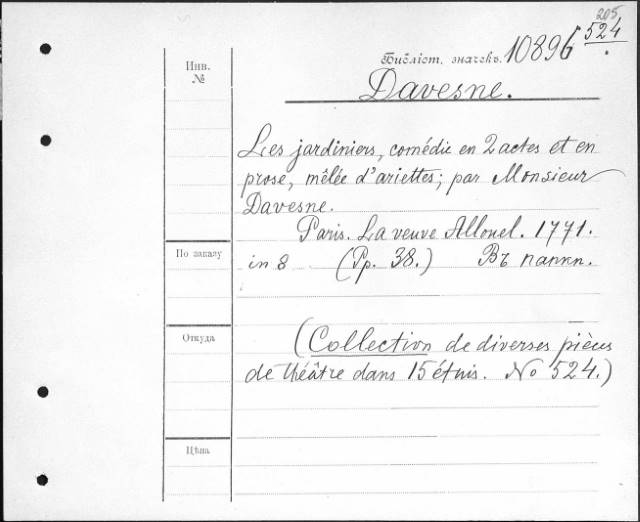 205.
524
Библіот. значекъ. 10896
Davesne.
Инв.
№
Les jardiniers, comédie en 2 actes et en
prose, mêlée d'ariettes; par Monsieur
Davesne.
Paris. La veuve Allouel. 1771.
По заказу
in 8 (Pp. 38.) Въ папкп.
Откуда
(Collection de diverses pièces
de théâtre dans 15 étuis. No 524.)
Цѣна